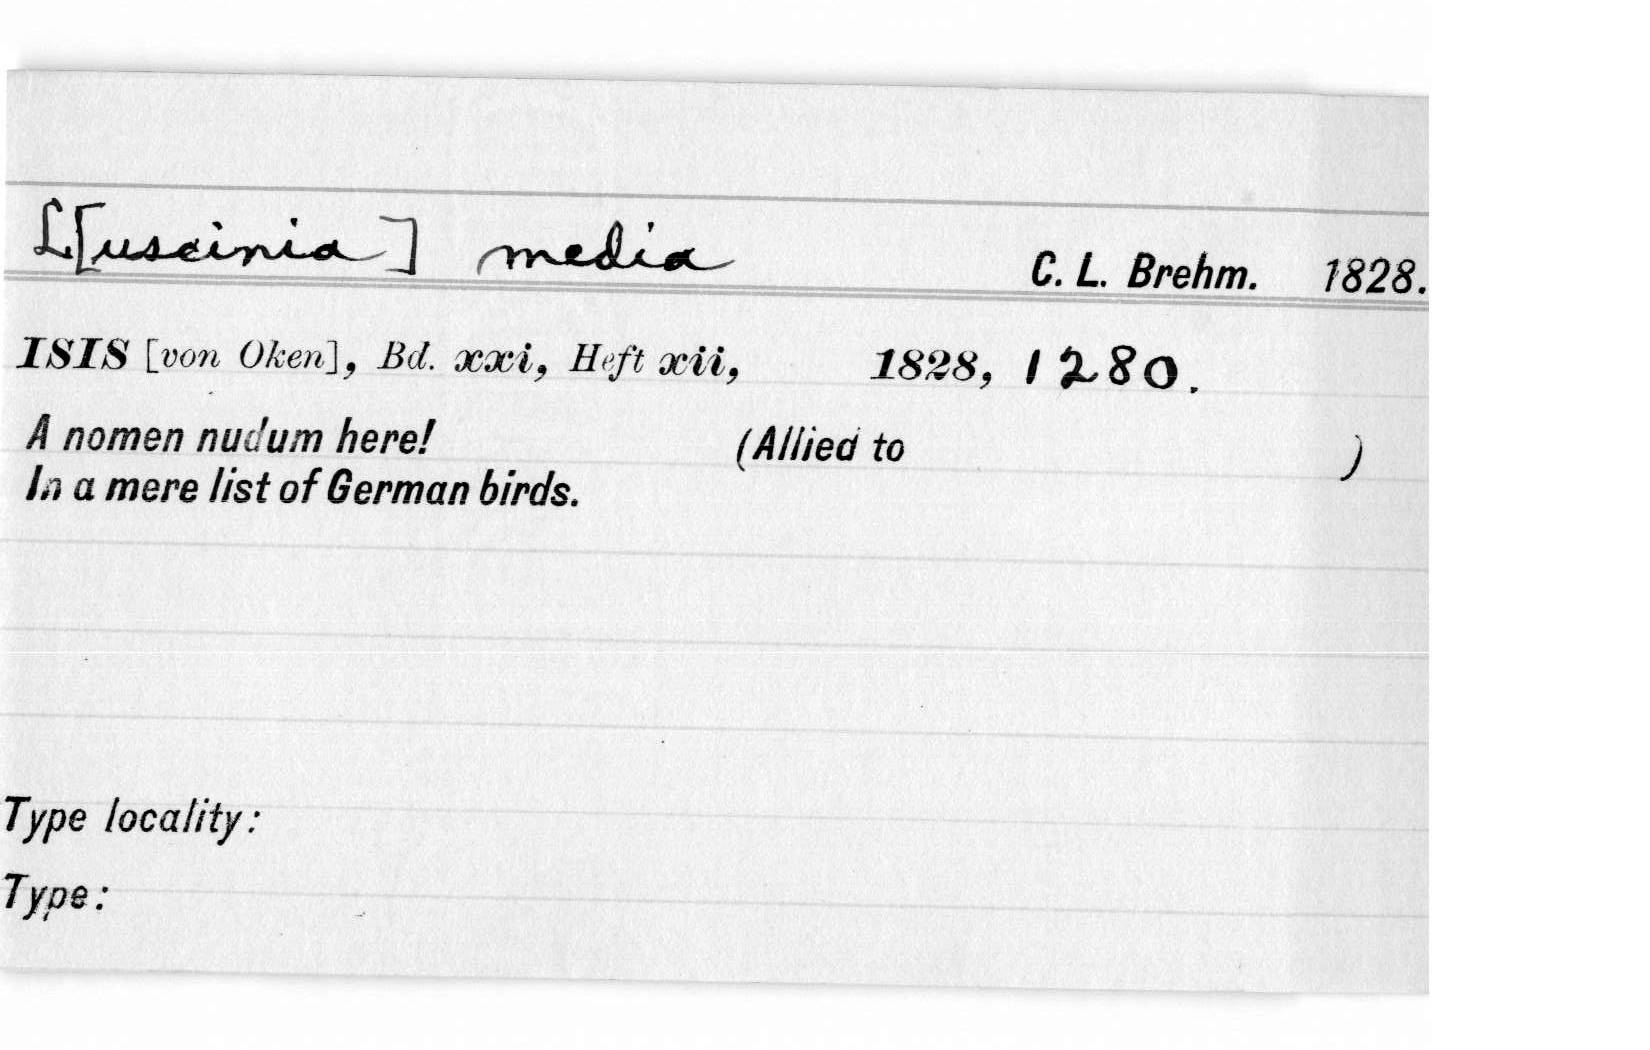 L[uscinia] media C. L. Brehm. 1828.
ISIS [von Oken], Bd. xxi, Heft xii, 1828, 1280.
A nomen nudum here! (Allied to )
In a mere list of German birds.
Type locality:
Type: